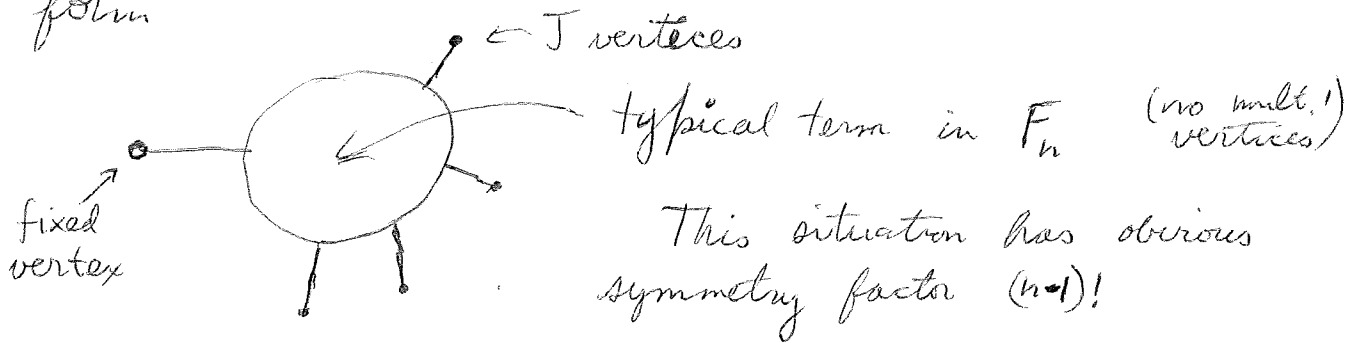 form
← J verteces
typical term in F_n (no mult. 1 vertices)
fixed vertex
This situation has obvious
symmetry factor (n-1)!